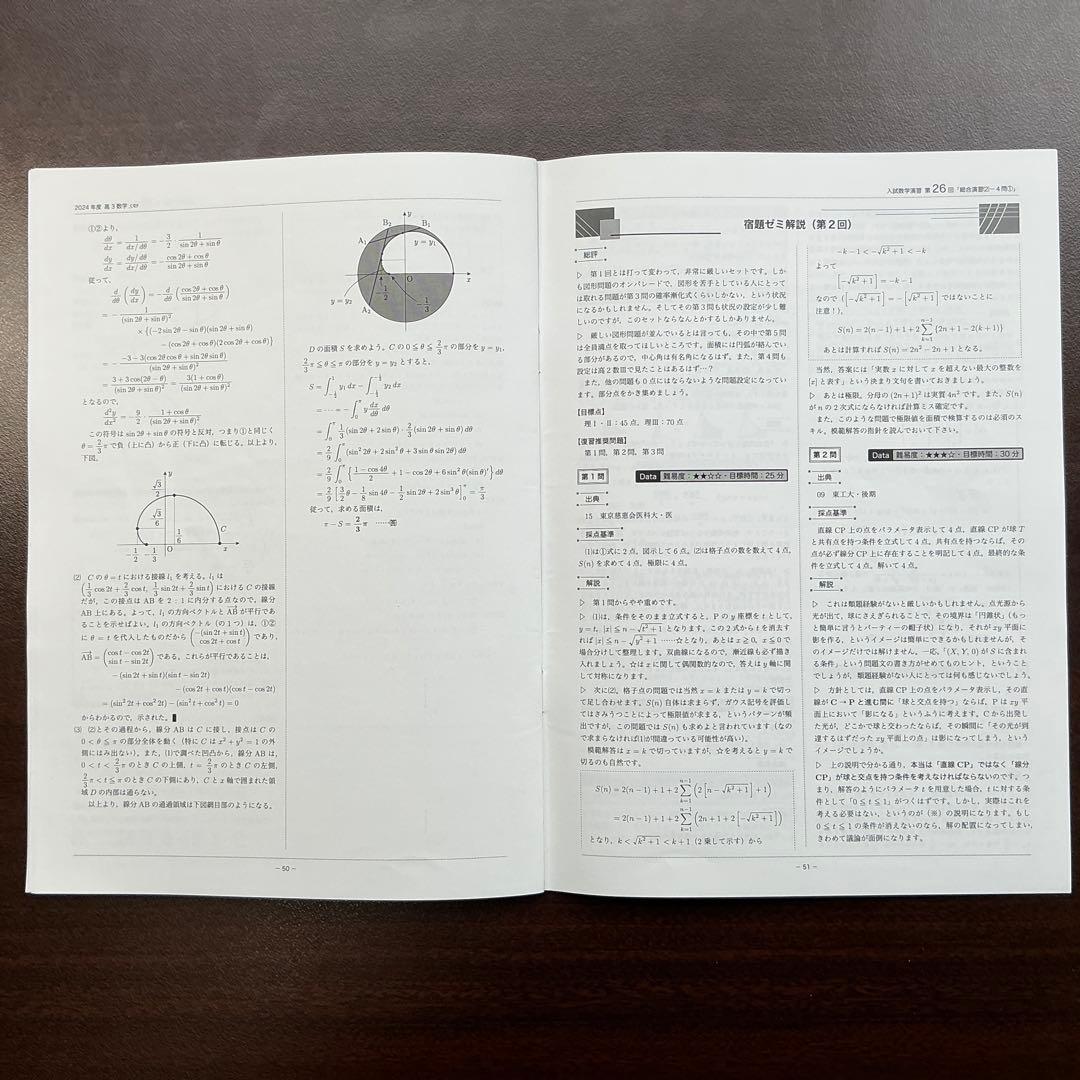 2024年度 高3数学
①②より,
dθ/dx = 1/(dx/dθ) = −3/2 · 1/(sin2θ+sinθ)
dy/dx = (dy/dθ)/(dx/dθ) = −(cos2θ+cosθ)/(sin2θ+sinθ)
従って,
d/dθ(dy/dx) = −d/dθ((cos2θ+cosθ)/(sin2θ+sinθ))
= −1/(sin2θ+sinθ)²
×{(−2sin2θ−sinθ)(sin2θ+sinθ)
−(cos2θ+cosθ)(2cos2θ+cosθ)}
= −(−3−3(cos2θcosθ+sin2θsinθ))/(sin2θ+sinθ)²
= (3+3cos(2θ−θ))/(sin2θ+sinθ)² = 3(1+cosθ)/(sin2θ+sinθ)²
となるので,
d²y/dx² = −9/2 · (1+cosθ)/(sin2θ+sinθ)³
この符号は sin2θ+sinθ の符号と反対, つまり①と同じく
θ=2/3πで負(上に凸)から正(下に凸)に転じる。以上より,
下図。
y
√3/2
√3/6
1/6
C
−1/2
−1/3
O
x
(2) Cのθ=tにおける接線l₁を考える。l₁は
(1/3cos2t+2/3cost, 1/3sin2t+2/3sint)におけるCの接線
だが, この接点はABを2:1に内分する点なので, 線分
AB上にある。よって, l₁の方向ベクトルとABが平行であ
ることを示せばよい。l₁の方向ベクトル(の1つ)は, ①②
にθ=tを代入したものだから(−(sin2t+sint) cos2t+cost)であり,
AB=(cost−cos2t sint−sin2t)である。これらが平行であることは,
−(sin2t+sint)(sint−sin2t)
−(cos2t+cost)(cost−cos2t)
=(sin²2t+cos²2t)−(sin²t+cos²t)=0
からわかるので, 示された。
(3) (2)とその過程から, 線分ABはCに接し, 接点はCの
0<θ≦πの部分全体を動く(特にCはx²+y²=1の外
側にはみ出ない)。また, (1)で調べた凹凸から, 線分ABは,
0<t<2/3πのときCの上側, t=2/3πのときCの左側,
2/3π<t≦πのときCの下側にあり, Cとx軸で囲まれた領
域Dの内部は通らない。
以上より, 線分ABの通過領域は下図網目部のようになる。
y
B₂
B₁
A₁
y=y₁
x
−1/2
−1/3
y=y₂
A₂
Dの面積Sを求めよう。Cの0≦θ≦2/3πの部分をy=y₁,
2/3π≦θ≦πの部分をy=y₂とすると,
S=∫_{−1/2}^{1} y₁dx−∫_{−1/2}^{−1/3} y₂dx
=……=−∫₀^π y dx/dθ dθ
=∫₀^π 1/3(sin2θ+2sinθ)·2/3(sin2θ+sinθ)dθ
=2/9∫₀^π(sin²2θ+2sin²θ+3sinθsin2θ)dθ
=2/9∫₀^π{(1−cos4θ)/2+1−cos2θ+6sin²θ(sinθ)′}dθ
=2/9[3/2θ−1/8sin4θ−1/2sin2θ+2sin³θ]₀^π=π/3
従って, 求める面積は,
π−S=2/3π ……答
− 50 −
入試数学演習 第26回「総合演習②−4問①」
宿題ゼミ解説(第2回)
総評
▷ 第1回とは打って変わって, 非常に厳しいセットです。しか
も図形問題のオンパレードで, 図形を苦手としている人にとって
は取れる問題が第3問の確率漸化式くらいしかない, という状況
になるかもしれません。そしてその第3問も状況の設定が少し難
しいのですが, このセットならなんとかするしかありません。
▷ 厳しい図形問題が並んでいるとは言っても, その中で第5問
は全員満点を取ってほしいところです。面積には円弧が絡んでい
る部分があるので, 中心角は有名角になるはず。また, 第4問も
設定は高2数目で見たことはあるはず…?
また, 他の問題も0点にはならないような問題設定になってい
ます。部分点をかき集めましょう。
【目標点】
理Ⅰ・Ⅱ:45点, 理Ⅲ:70点
【復習推奨問題】
第1問, 第2問, 第3問
第1問 Data 難易度:★★☆☆・目標時間:25分
出典
15 東京慈恵会医科大・医
採点基準
(1)は①式に2点, 図示して6点。(2)は格子点の数を数えて4点,
S(n)を求めて4点, 極限に4点。
解説
▷ 第1問からやや重めです。
▷ (1)は, 条件をそのまま立式すると, Pのy座標をtとして,
y=t, |x|≦n−√(t²+1)となります。この2式からtを消去す
れば|x|≦n−√(y²+1)……☆となり, あとはx≧0, x≦0で
場合分けして整理します。双曲線になるので, 漸近線も必ず描き
入れましょう。☆はxに関して偶関数的なので, 答えはy軸に関
して対称になります。
▷ 次に(2)。格子点の問題では当然x=kまたはy=kで切っ
て足し合わせます。S(n)自体は求まらず, ガウス記号を評価し
てはさみうつことによって極限値が求まる, というパターンが頻
出ですが, この問題ではS(n)も求めよと言われています(なの
で求まらなければ(1)が間違っている可能性が高い)。
模範解答はx=kで切っていますが, ☆を考えるとy=kで
切るのも自然です。
S(n)=2(n−1)+1+2Σ_{k=1}^{n−1}(2[n−√(k²+1)]+1)
=2(n−1)+1+2Σ_{k=1}^{n−1}(2n+1+2[−√(k²+1)])
となり, k<√(k²+1)<k+1(2乗して示す)から
−k−1<−√(k²+1)<−k
よって
[−√(k²+1)]=−k−1
なので([−√(k²+1)]=−[√(k²+1)]ではないことに
注意!),
S(n)=2(n−1)+1+2Σ_{k=1}^{n−1}{2n+1−2(k+1)}
あとは計算すればS(n)=2n²−2n+1となる。
当然, 答案には「実数xに対してxを超えない最大の整数を
[x]と表す」という決まり文句を書いておきましょう。
▷ あとは極限。分母の(2n+1)²は実質4n²です。また, S(n)
がnの2次式にならなければ計算ミス確定です。
また, このような問題で極限値を面積で検算するのは必須のス
キル。模範解答の指針を読んでおいて下さい。
第2問 Data 難易度:★★★☆・目標時間:30分
出典
09 東工大・後期
採点基準
直線CP上の点をパラメータ表示して4点, 直線CPが球T
と共有点を持つ条件を立式して4点, 共有点を持つならば, その
点が必ず線分CP上に存在することを明記して4点, 最終的な条
件を立式して4点, 解いて4点。
解説
▷ これは類題経験がないと厳しいかもしれません。点光源から
光が出て, 球にさえぎられることで, その境界は「円錐状」(もっ
と簡単に言うとパーティーの帽子状)になり, それがxy平面に
影を作る, というイメージは簡単にできるかもしれませんが, そ
のイメージだけでは解けません。一応,「(X, Y, 0)がSに含まれ
る条件」という問題文の書き方がせめてものヒント, ということ
でしょうが, 類題経験がない人にとっては何も感じないでしょう。
▷ 方針としては, 直線CP上の点をパラメータ表示し, その直
線がC→Pと進む間に「球と交点を持つ」ならば, Pはxy平
面上において「影になる」というふうに考えます。Cから出発し
た光が, どこかで球と交わったならば, その瞬間に「その光が到
達するはずだったxy平面上の点」は影になってしまう, という
イメージでしょうか。
▷ 上の説明で分かる通り, 本当は「直線CP」ではなく「線分
CP」が球と交点を持つ条件を考えなければならないのです。つ
まり, 解答のようにパラメータtを用意した場合, tに対する条
件として「0≦t≦1」がつくはずです。しかし, 実際はこれを
考える必要はない, というのが(※)の説明になります。もし
0≦t≦1の条件が消えないのなら, 解の配置になってしまい,
きわめて議論が面倒になります。
− 51 −